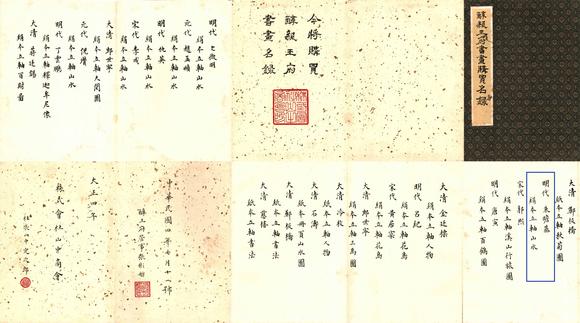 醇親王府書畫購買名錄
今將購買
醇親王府
書畫名錄
明代 文徵明
絹本立軸山水
元代 趙孟頫
絹本立軸山水
明代 仇英
絹本立軸山水
宋代 李成
絹本立軸山水
大清 郎世寧
絹本立軸人閒圖
元代 倪瓚
絹本立軸山水
明代 丁雲鵬
絹本立軸釋迦牟尼像
大清 蔣廷錫
絹本立軸百財圖
大清 鄭板橋
紙本立軸秋菊圖
明代 朱瞻基
絹本立軸山水
宋代 郭熙
絹本立軸溪山行旅圖
明代 唐寅
絹本立軸百鶴圖
大清 金廷標
絹本立軸人物
明代 呂紀
絹本立軸花鳥
宋代 黃居寀
絹本立軸花鳥
大清 郎世寧
絹本立軸三馬圖
大清 冷枚
紙本立軸人物
大清 石濤
紙本冊頁山水圖
大清 鄭板橋
紙本立軸書法
大清
紙本立軸書法
中華民國四年七月十號
醇王府管事張彬
大正四年
株式會社山中商會
社長山中定次郎